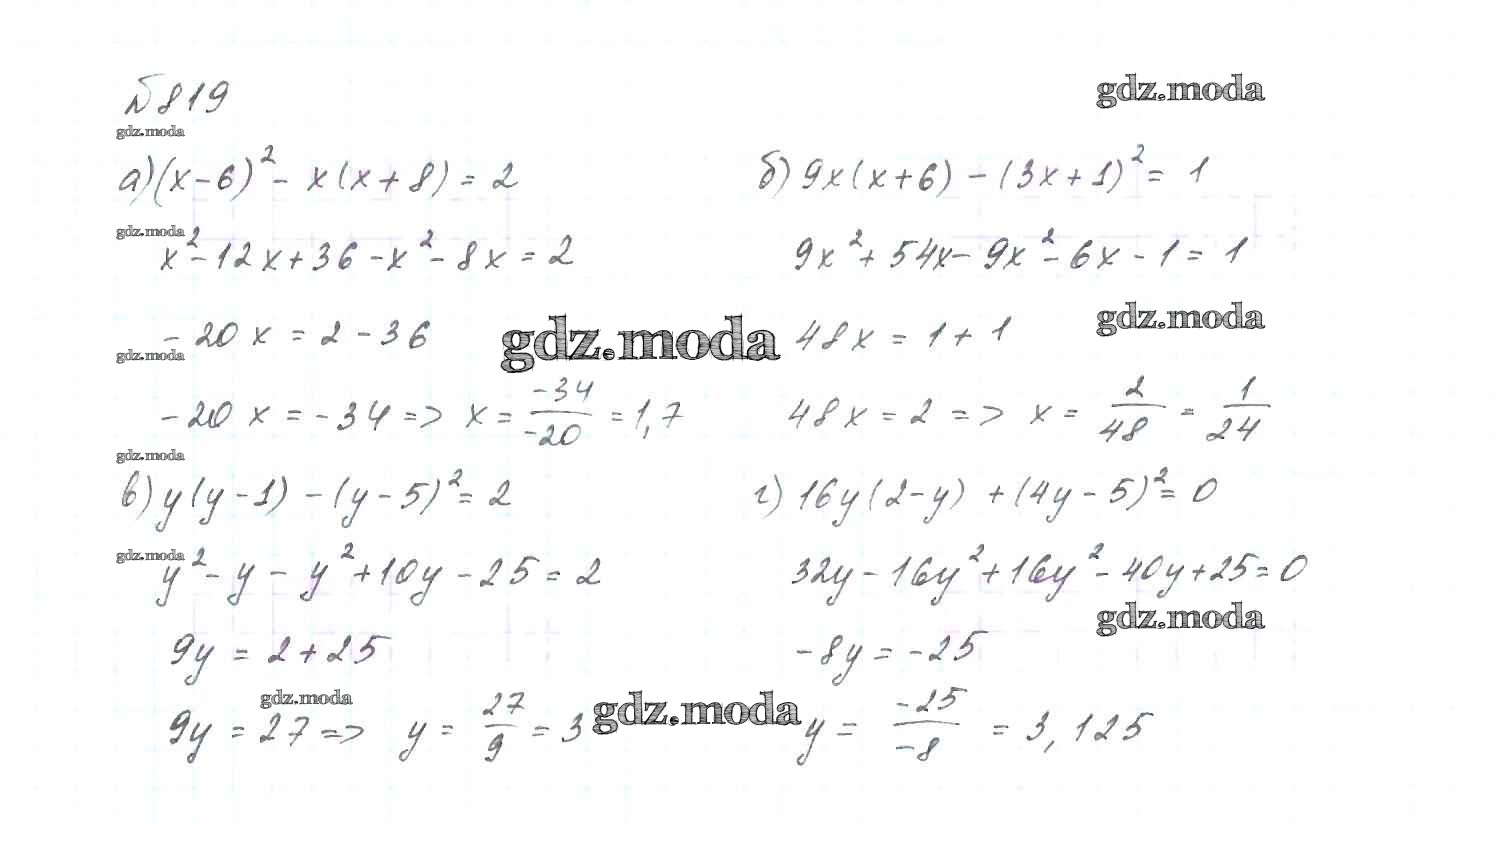 №819
gdz.moda
gdz.moda
а) (x-6)² - x(x+8) = 2
gdz.moda
x² - 12x + 36 - x² - 8x = 2
- 20x = 2 - 36
gdz.moda
gdz.moda
- 20x = - 34 => x = -34/-20 = 1,7
б) 9x(x+6) - (3x+1)² = 1
9x² + 54x - 9x² - 6x - 1 = 1
gdz.moda
48x = 1 + 1
48x = 2 => x = 2/48 = 1/24
gdz.moda
в) y(y-1) - (y-5)² = 2
gdz.moda
y² - y - y² + 10y - 25 = 2
9y = 2 + 25
gdz.moda
9y = 27 => y = 27/9 = 3
gdz.moda
г) 16y(2-y) + (4y-5)² = 0
32y - 16y² + 16y² - 40y + 25 = 0
gdz.moda
-8y = -25
y = -25/-8 = 3,125